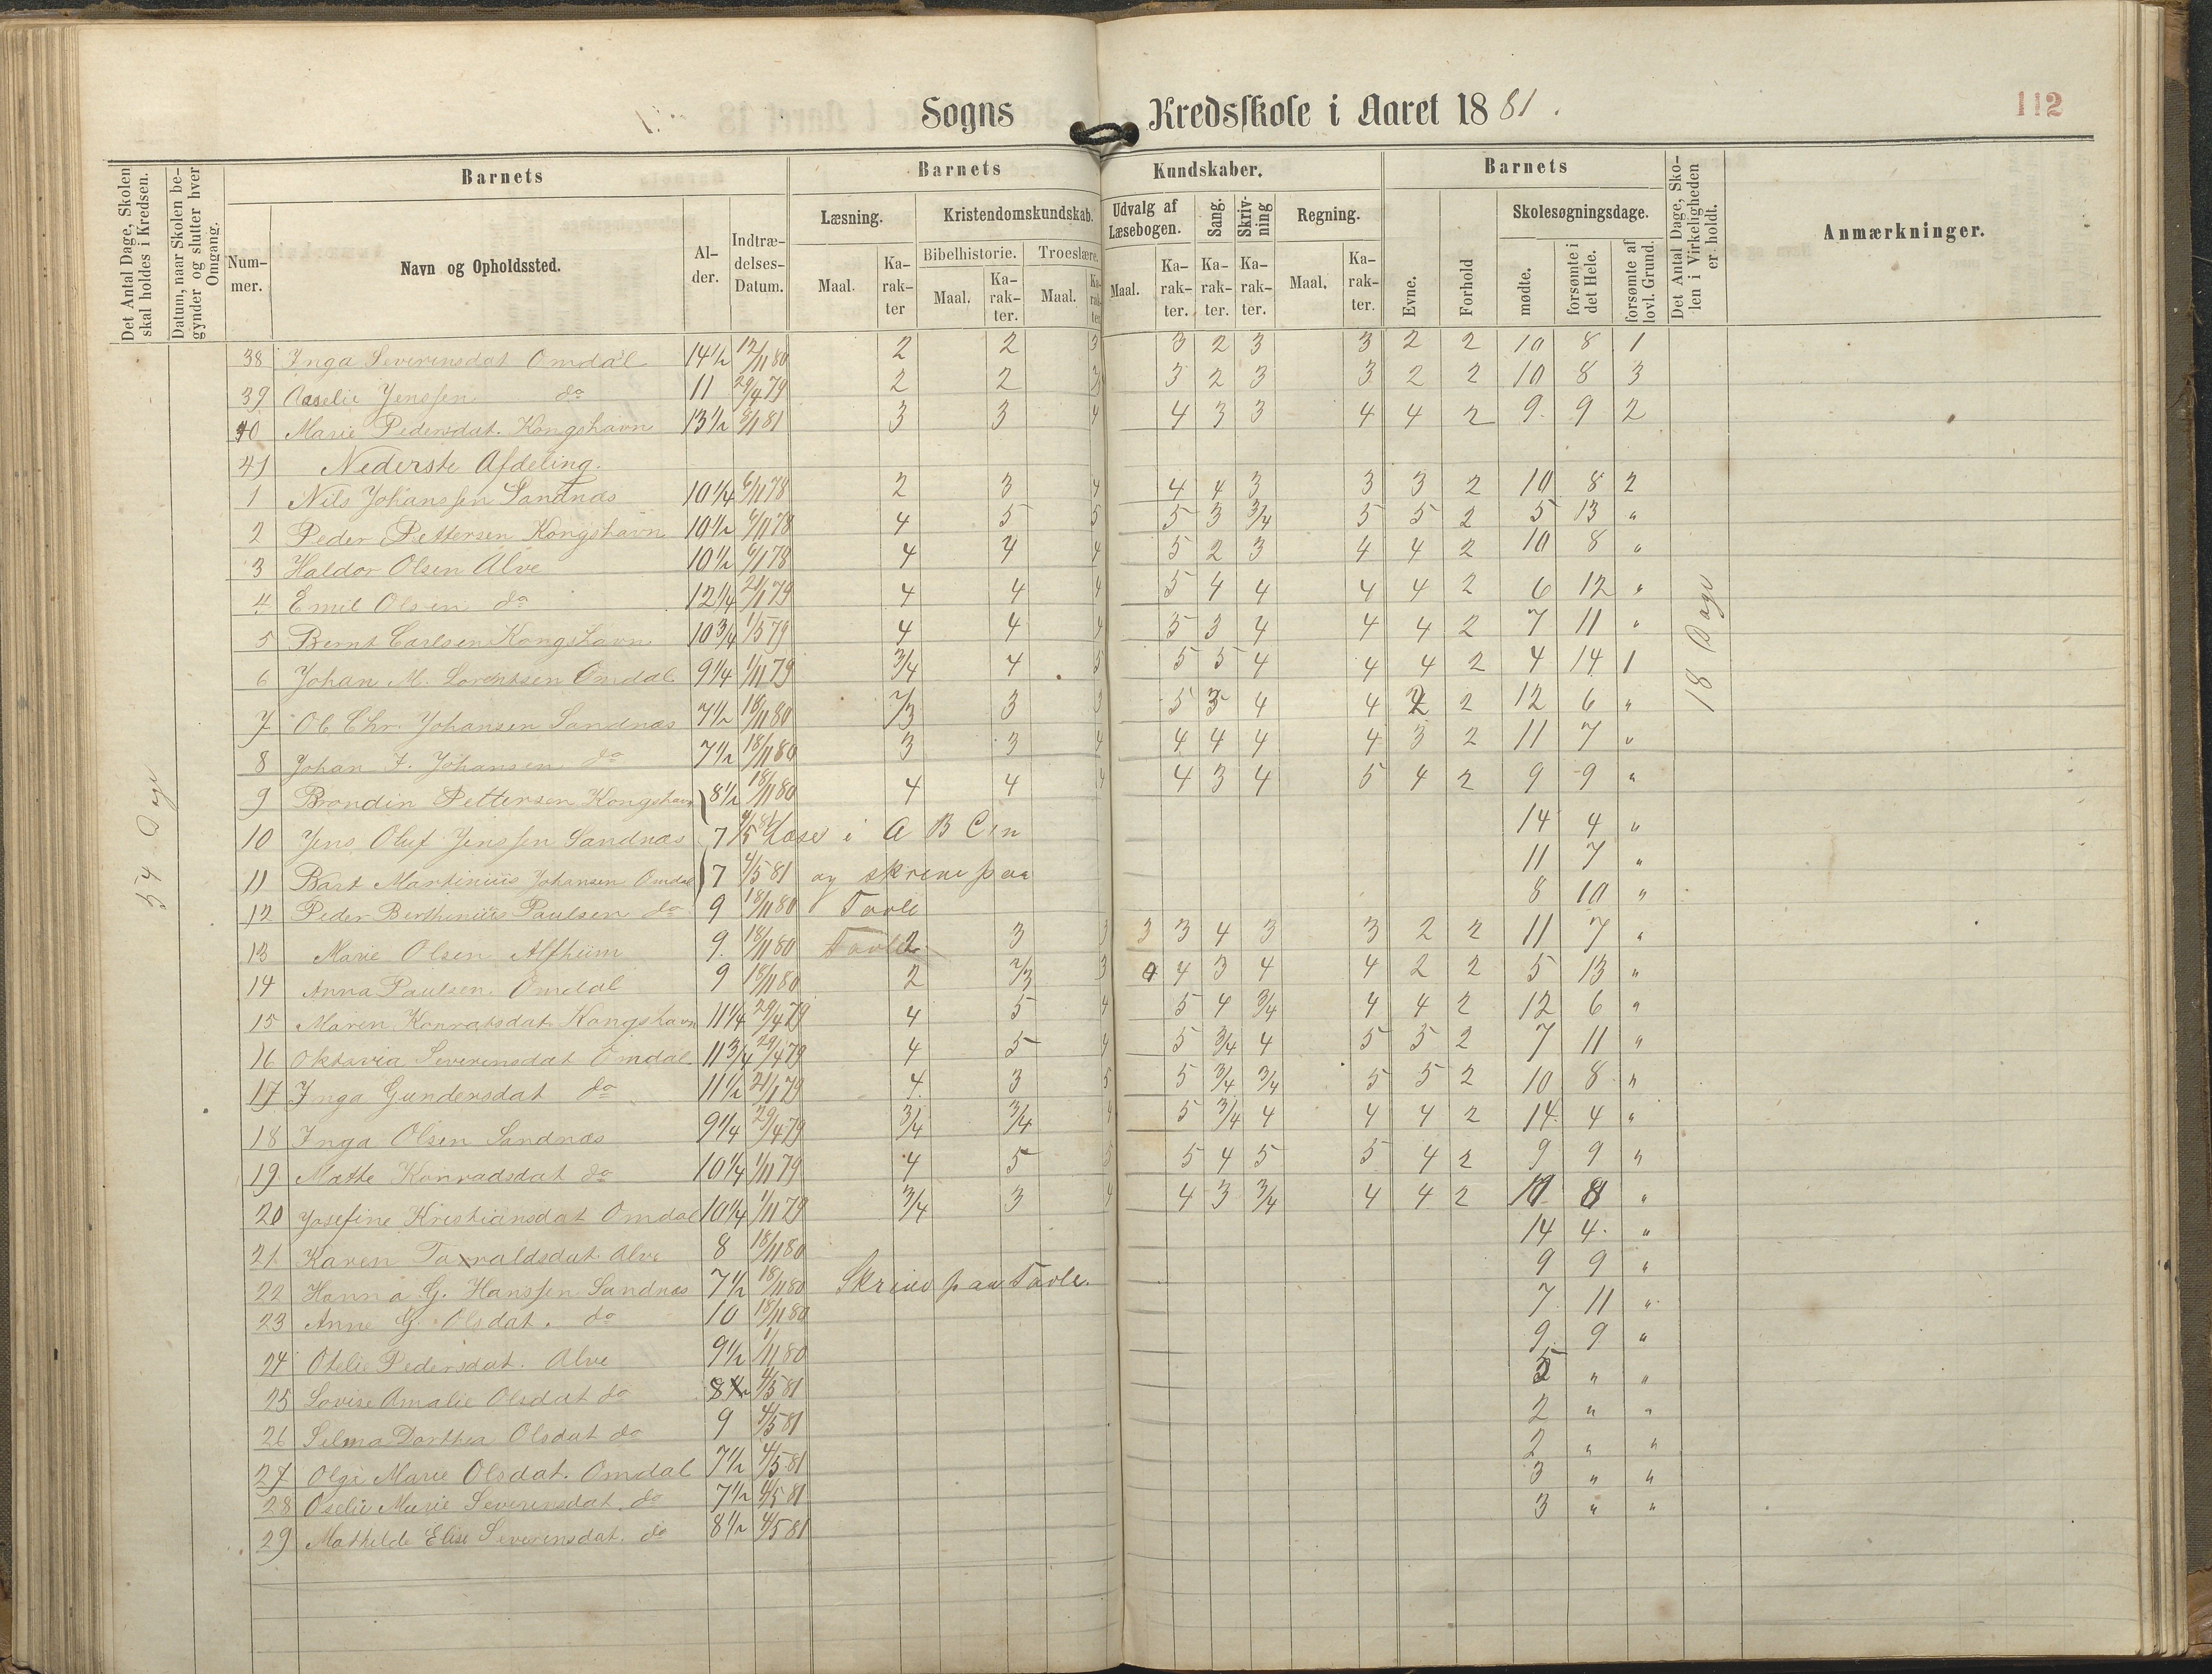 Sogns Kredsskole i Aaret 1881.
112
Det Antal Dage, Skolen skal holdes i Kredsen.
Datum, naar Skolen begynder og slutter hver Omgang.
Barnets
Barnets
Kundskaber.
Barnets
Det Antal Dage, Skolen i Virkeligheden er holdt.
Anmærkninger.
Nummer.
Navn og Opholdssted.
Alder.
Indtrædelses-Datum.
Læsning.
Kristendomskundskab.
Udvalg af Læsebogen.
Sang.
Skrivning
Regning.
Evne.
Forhold
Skolesøgningsdage.
Bibelhistorie.
Troeslære.
Maal.
Karakter
Maal.
Karakter.
Maal.
Karakter
Maal.
Karakter.
Karakter.
Karakter.
Maal.
Karakter.
mødte.
forsømte i det Hele.
forsømte af lovl. Grund.
54 Dage
18 Dage
38 Inga Severinsdat Omdal 14½ 12/11 80 2 2 3 3 2 3 3 2 2 10 8 1
39 Aaselie Jenssen do 11 29/4 79 2 2 3 3 2 3 3 2 2 10 8 3
40 Marie Pedersdat. Kongshavn 13½ 8/1 81 3 3 4 4 3 3 4 4 2 9 9 2
41 Nederste Afdeling.
1 Nils Johanssen Sandnæs 10¼ 6/11 78 2 3 4 4 4 3 3 3 2 10 8 2
2 Peder Pettersen Kongshavn 10½ 6/11 78 4 5 5 5 3 3/4 5 5 2 5 13 "
3 Haldor Olsen Alve 10½ 6/1 78 4 4 4 5 2 3 4 4 2 10 8 "
4 Emil Olsen do 12¼ 21/1 79 4 4 4 5 4 4 4 4 2 6 12 "
5 Bernt Carlsen Kongshavn 10¾ 1/5 79 4 4 4 5 3 4 4 4 2 7 11 "
6 Johan M. Lorentsen Omdal 9¼ 1/11 79 3/4 4 5 5 5 4 4 4 2 4 14 1
7 Ol. Chr. Johansen Sandnæs 7½ 18/11 80 2/3 3 3 5 3 4 4 2 2 12 6 "
8 Johan F. Johansen do 7½ 18/11 80 3 3 4 4 4 4 4 3 2 11 7 "
9 Brondin Pettersen Kongshavn 8½ 18/11 80 4 4 4 4 3 4 5 4 2 9 9 "
10 Jens Oluf Jenssen Sandnæs 7 4/5 81 Læser i A B C'en 14 4 "
11 Bart Martinius Johansen Omdal 7 4/5 81 og skrive paa 11 7 "
12 Peder Berthinius Paulsen do 9 18/11 80 Tavle 8 10 "
13 Marie Olsen Alfheim 9 18/11 80 Tavle 2 3 3 3 3 4 3 3 2 2 11 7 "
14 Anna Paulsen Omdal 9 18/11 80 2 2/3 3 4 4 3 4 4 2 2 5 13 "
15 Maren Konratsdat Kongshavn 11¼ 29/4 79 4 5 4 5 4 3/4 4 4 2 12 6 "
16 Oktavia Severinsdat Omdal 11¾ 29/4 79 4 5 4 5 3/4 4 5 5 2 7 11 "
17 Inga Gundersdat do 11½ 21/1 79 4 3 5 5 3/4 3/4 5 5 2 10 8 "
18 Inga Olsen Sandnæs 9¼ 29/4 79 3/4 3/4 4 5 3/4 4 4 4 2 14 4 "
19 Mætte Konradsdat do 10¼ 1/11 79 4 5 5 5 4 5 5 4 2 9 9 "
20 Josefine Kristiansdat Omdal 10¼ 1/11 79 3/4 3 4 4 3 3/4 4 4 2 10 8 "
21 Karen Taraldsdat Alve 8 18/11 80 14 4 "
22 Hanna G. Hanssen Sandnæs 7½ 18/11 80 Skrive paa Tavle. 9 9 "
23 Anne G Olsdat. do 10 18/11 80 7 11 "
24 Otelie Pedersdat. Alve 9½ 1/11 80 9 9 "
25 Lovise Amalie Olsdat do 8½ 4/5 81 " "
26 Selma Dorthea Olsdat do 9 4/5 81 2 " "
27 Olga Marie Olsdat. Omdal 7½ 4/5 81 2 " "
28 Oselie Marie Severinsdat. do 7½ 4/5 81 3 " "
29 Mathilde Elise Severinsdat. do 8½ 4/5 81 3 " "